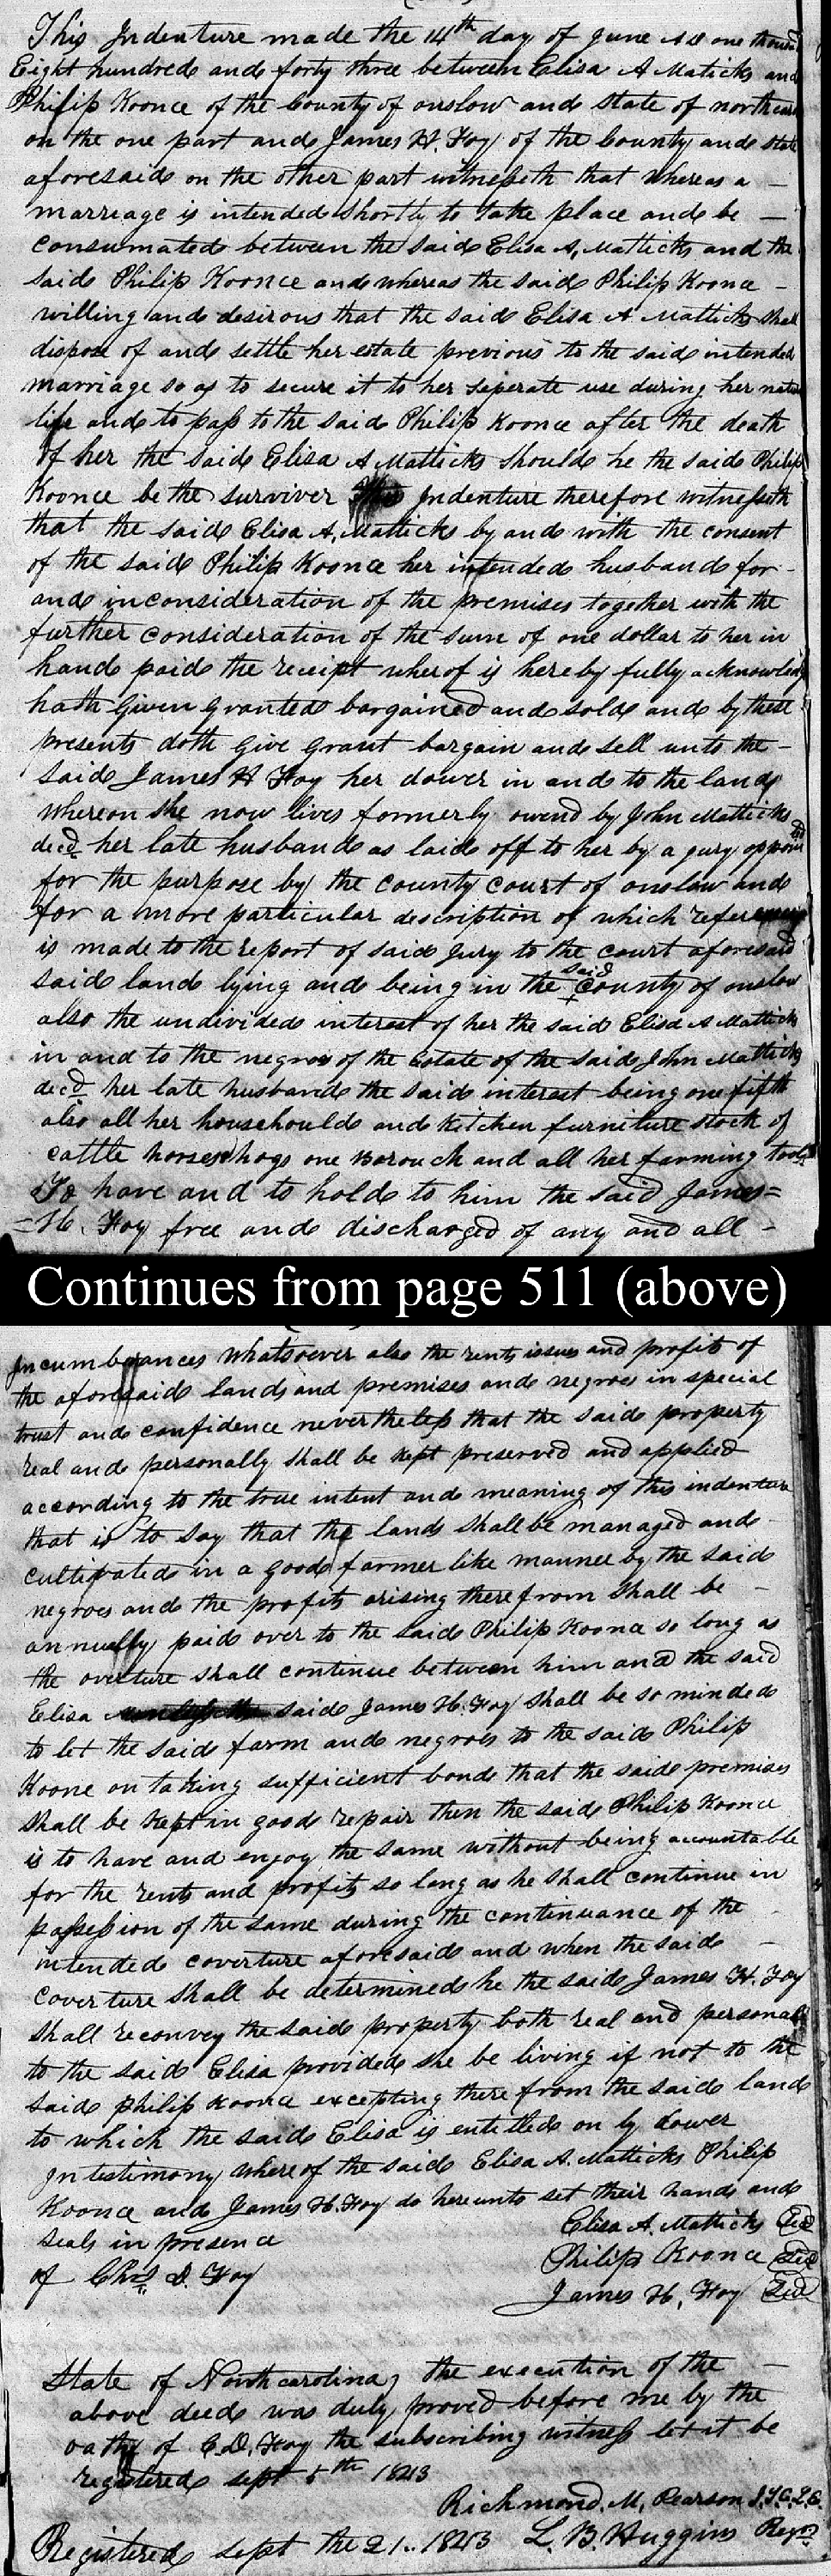 This Indenture made the 14th day of June AD one thousand
Eight hundred and forty three between Elisa A Maticks and
Philip Koonce of the County of onslow and state of north
on the one part and James H. Foy of the County and state
aforesaid on the other part witnesseth that whereas a —
marriage is intended shortly to take place and be —
consumated between the said Elisa A, Matticks and the
said Philip Koonce and whereas the said Philip Koonce -
willing and desirous that the said Elisa A Matticks shall
dispose of and settle her estate previous to the said intended
marriage so as to secure it to her seperate use during her natural
life and to pass to the said Philip Koonce after the death
of her the said Elisa A Matticks should he the said Philip
Koonce be the surviver This Indenture therefore witnesseth
that the said Elisa A, Matticks by and with the consent
of the said Philip Koonce her intended husband for -
and in consideration of the premises together with the
further consideration of the sum of one dollar to her in
hand paid the receipt wherof is hereby fully acknowledg
hath Given granted bargained and sold and by these
presents doth Give Grant bargain and sell unto the -
said James H Foy her dower in and to the land
whereon she now lives formerly owend by John Matticks
decd. her late husband as laid off to her by a jury appointed
for the purpose by the county court of onslow and
for a more particular description of which reference
is made to the report of said jury to the court aforesaid
said land lying and being in the said County of onslow
also the undivided interest of her the said Elisa A Matticks
in and to the negroes of the Estate of the said John Matticks
decd. her late husband the said interest being one fifth
also all her househould and kitchen furniture stock of
cattle horses hogs one Barouch and all her farming tools
To have and to hold to him the said James =
= H. Foy free and discharged of any and all -
Continues from page 511 (above)
Incumberances whatsoever also the rents issues and profit of
the aforesaid land and premises and negroes in special
trust and confidence nevertheless that the said property
real and personally shall be kept preserved and applied
according to the true intent and meaning of this indenture
that is to say that the land shall be managed and -
cultivated in a good farmer like manner by the said
negroes and the profits arising therefrom shall be -
annually paid over to the said Philip Koonce so long as
the overture shall continue between him and the said
Elisa said James H. Foy shall be so minded
to let the said farm and negroes to the said Philip
Koone on taking sufficient bond that the said premises
shall be kept in good repair then the said Philip Koonce
is to have and enjoy the same without being accountable
for the rents and profits so long as he shall continue in
possession of the same during the continuance of the
intended coverture aforesaid and when the said —
coverture shall be determined he the said James H. Foy
shall reconvey the said property both real and personal
to the said Elisa provided she be living if not to the
said Philip Koonce excepting there from the said land
to which the said Elisa is entitled on by dower
In testimony whereof the said Elisa A. Matticks Philip
Koonce and James H. Foy do hereunto set their hands and
seals in presence
of Chas D. Foy
Elisa A. Matticks Seal
Philip Koonce Seal
James H, Foy Seal
State of North carolina, the execution of the —
above deed was duly proved before me by the
oath of C.D. Foy the subscribing witness let it be
registered sept 5th 1843
Richmond. M, Pearson J.S.C.L.E.
Registered sept the 21.. 1843 L. B. Huggins Regr